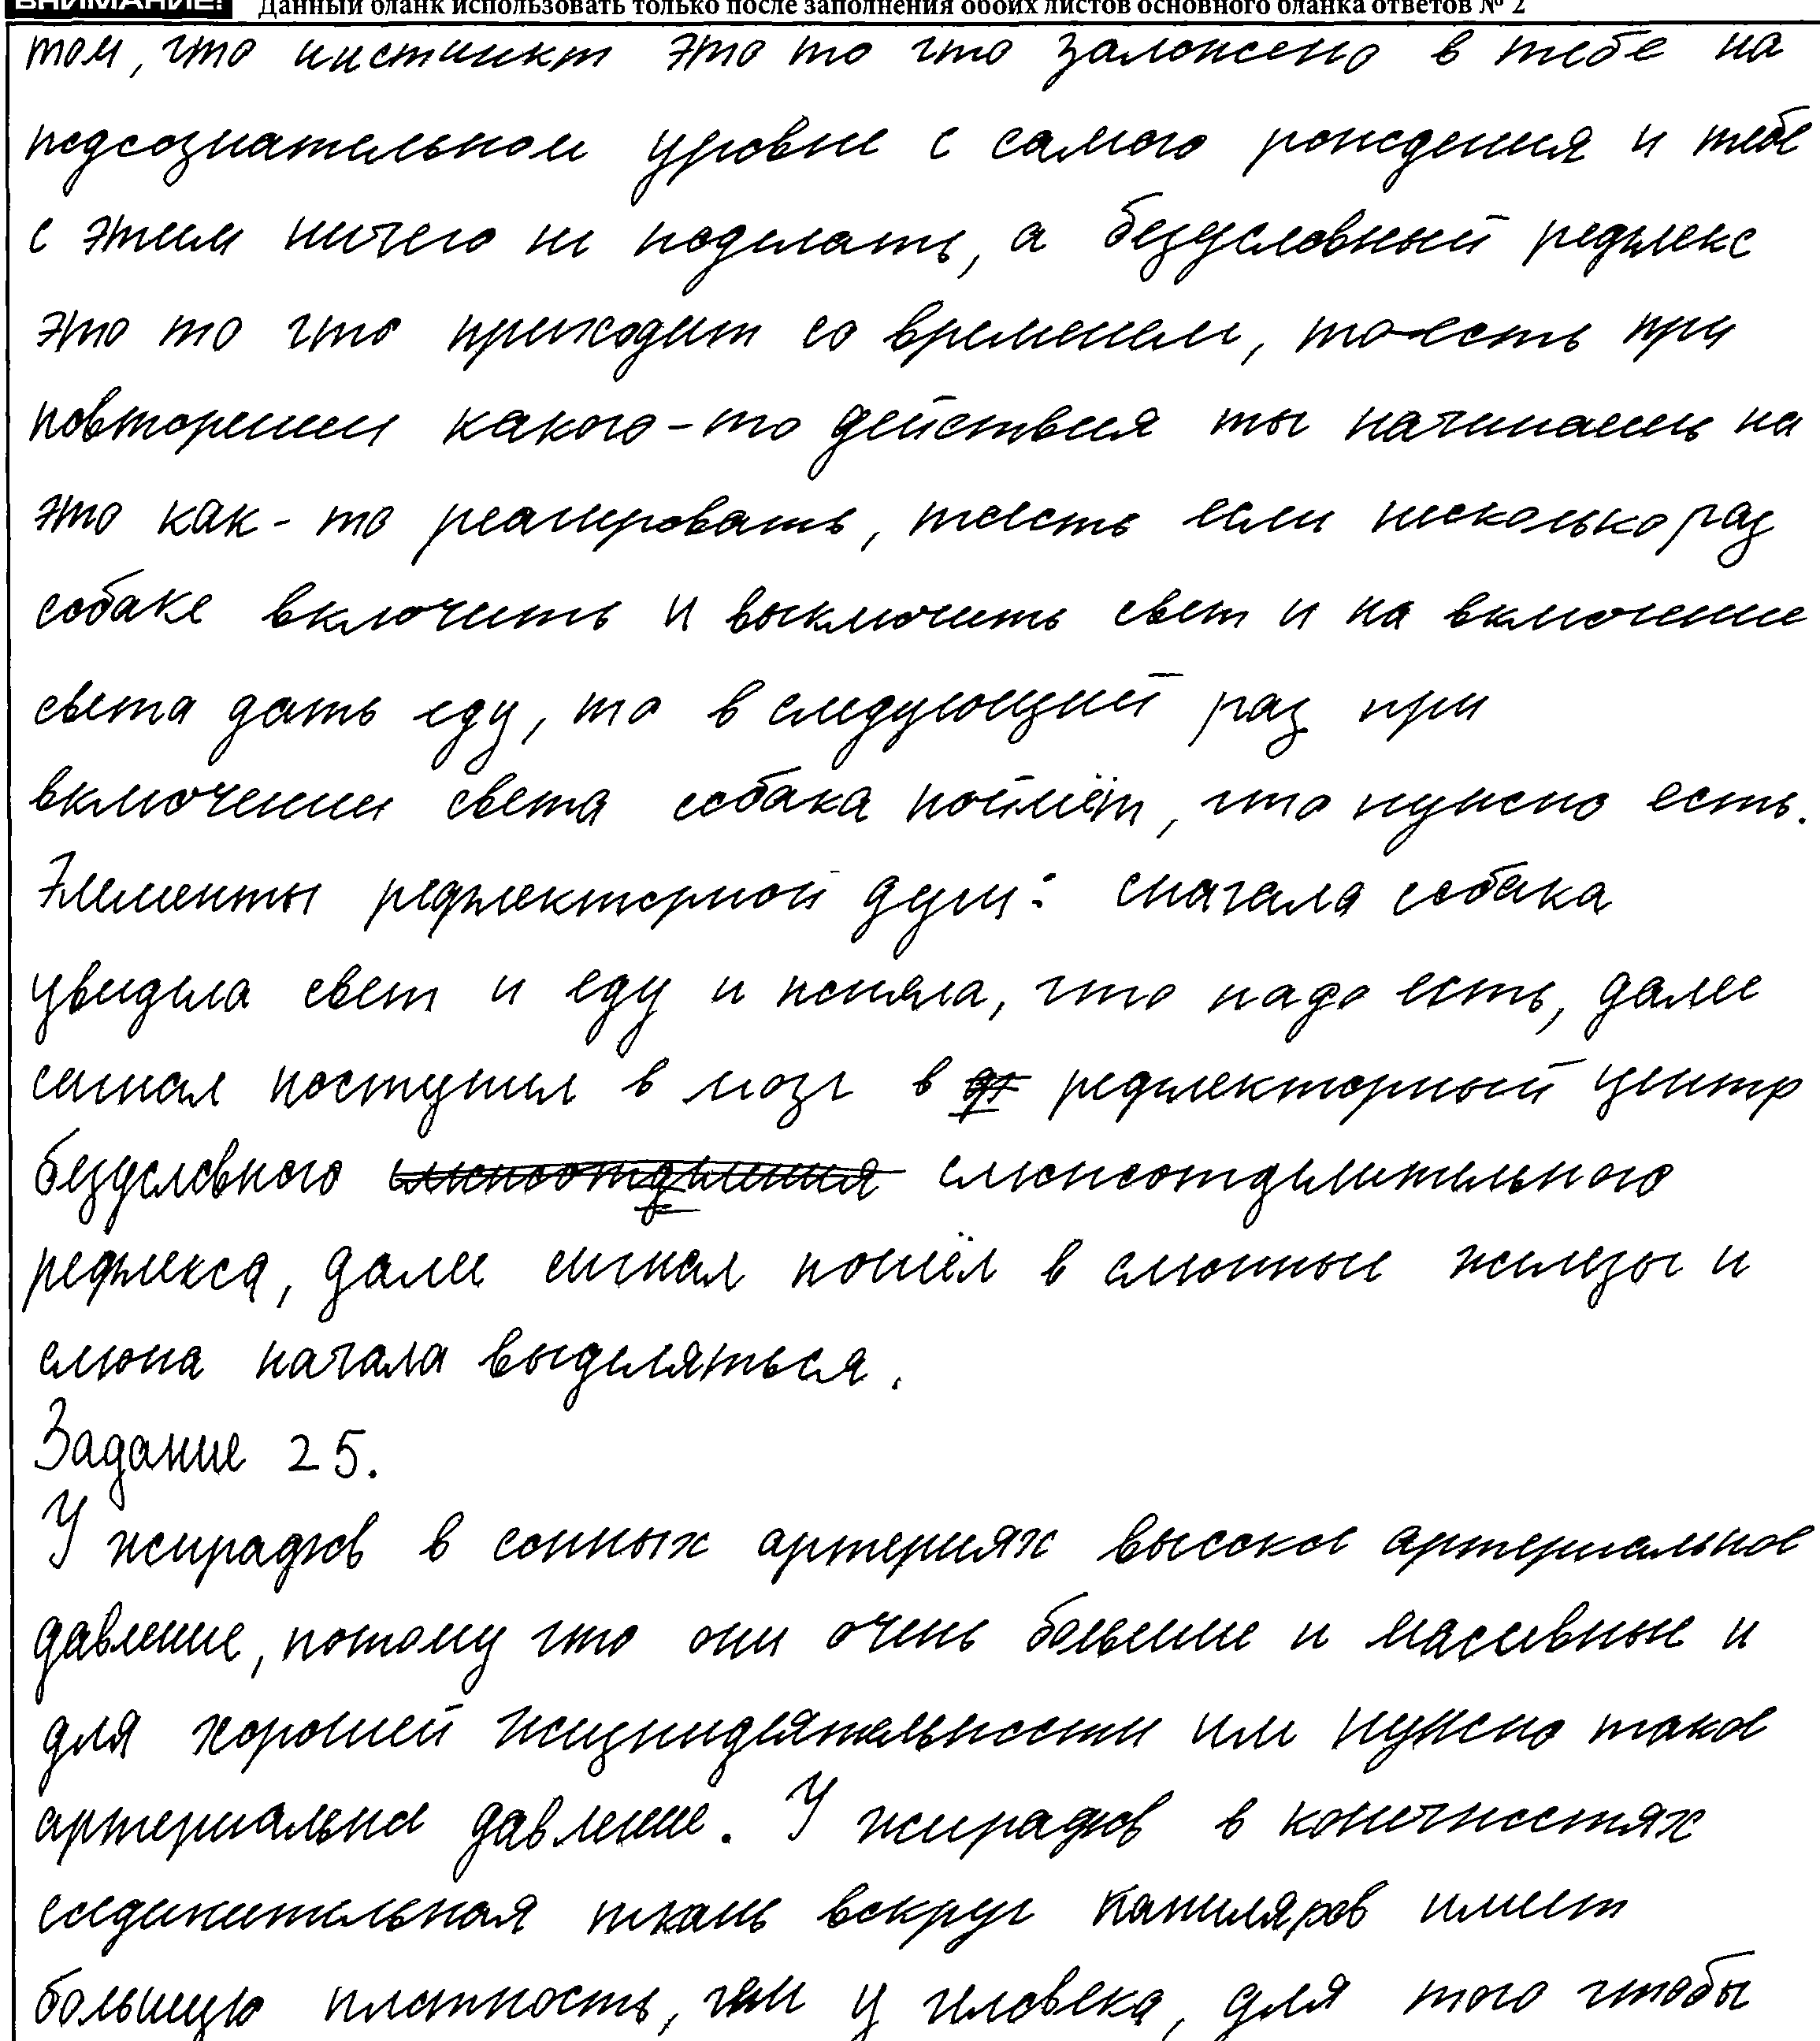 ВНИМАНИЕ! Данный бланк использовать только после заполнения обоих листов основного бланка ответов № 2
том, что инстинкт это то что заложено в тебе на
подсознательном уровне с самого рождения и тебе
с этим ничего не поделать, а безусловный рефлекс
это то что приходит со временем, то-есть при
повторении какого-то действия ты начинаешь на
это как-то реагировать, тоесть если несколько раз
собаке включить и выключить свет и на включение
света дать еду, то в следующий раз при
включении света собака поймёт, что нужно есть.
Элементы рефлекторной дуги: сначала собака
увидила свет и еду и поняла, что надо есть, далее
сигнал поступил в мозг в рефлекторный центр
безусловного слюноотделения слюноотделительного
рефлекса, далее сигнал пошёл в слюнные железы и
слюна начала выделяться.
Задание 25.
У жирафов в сонных артериях высокое артериальное
давление, потому что они очень большие и массивные и
для хорошей жизнидеятельности им нужно такое
артериальное давление. У жирафов в конечностях
соединительная ткань вокруг капиляров имеет
большую плотность, чем у человека, для того чтобы